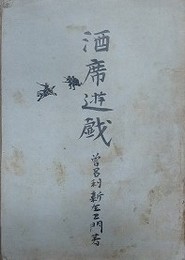 酒席遊戯
曽呂利新左エ門著